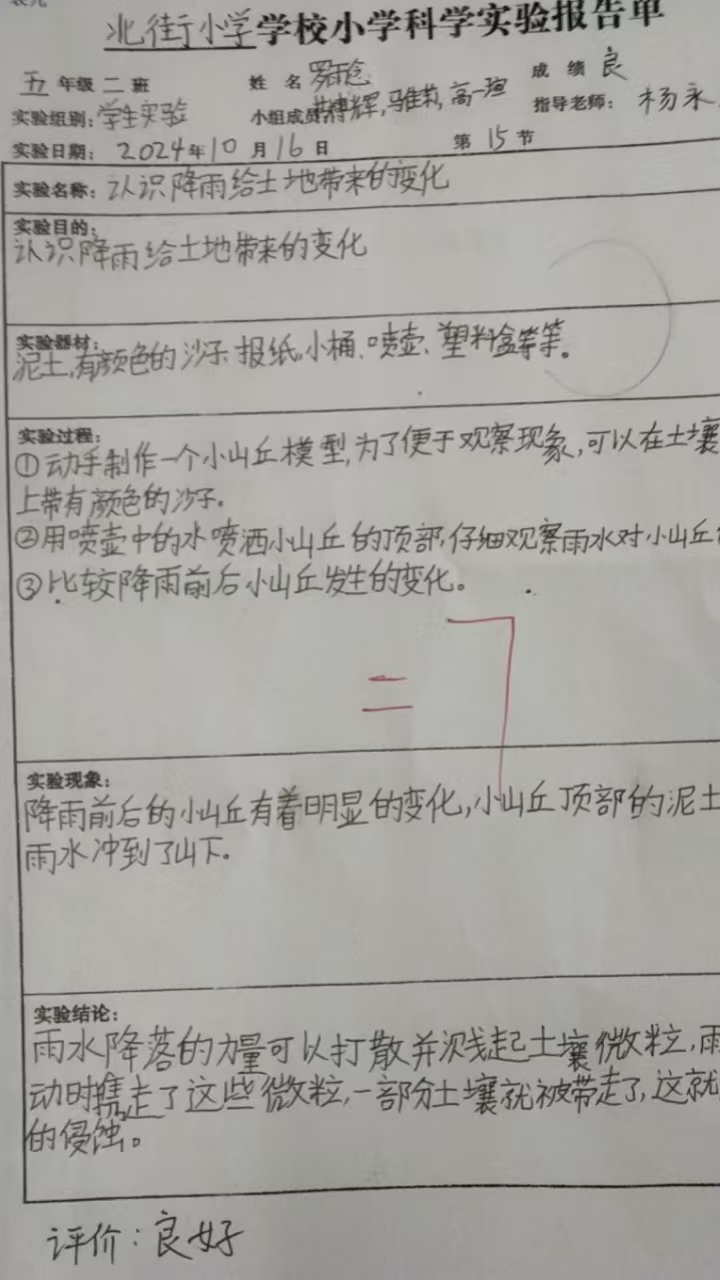 北街小学学校小学科学实验报告单
五年级二班 姓名 成绩 良
实验组别:学生实验 小组成员 辉,马佳莉,高一瑄 指导老师:杨永
实验日期:2024年10月16日 第15节
实验名称:认识降雨给土地带来的变化
实验目的:
认识降雨给土地带来的变化
实验器材:
泥土,有颜色的沙子、报纸、小桶、喷壶、塑料盒等等。
实验过程:
①动手制作一个小山丘模型,为了便于观察现象,可以在土壤
上带有颜色的沙子。
②用喷壶中的水喷洒小山丘的顶部,仔细观察雨水对小山丘
③比较降雨前后小山丘发生的变化。
实验现象:
降雨前后的小山丘有着明显的变化,小山丘顶部的泥土
雨水冲到了山下。
实验结论:
雨水降落的力量可以打散并溅起土壤微粒,雨
动时携走了这些微粒,一部分土壤就被带走了,这就
的侵蚀。
评价:良好